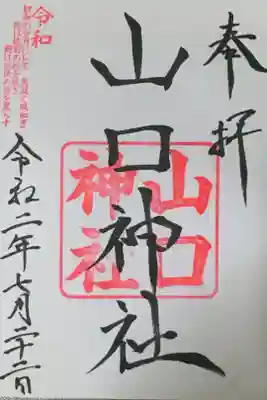 奉拝
山口神社
山口
神社
令和二年七月二十二日
令和